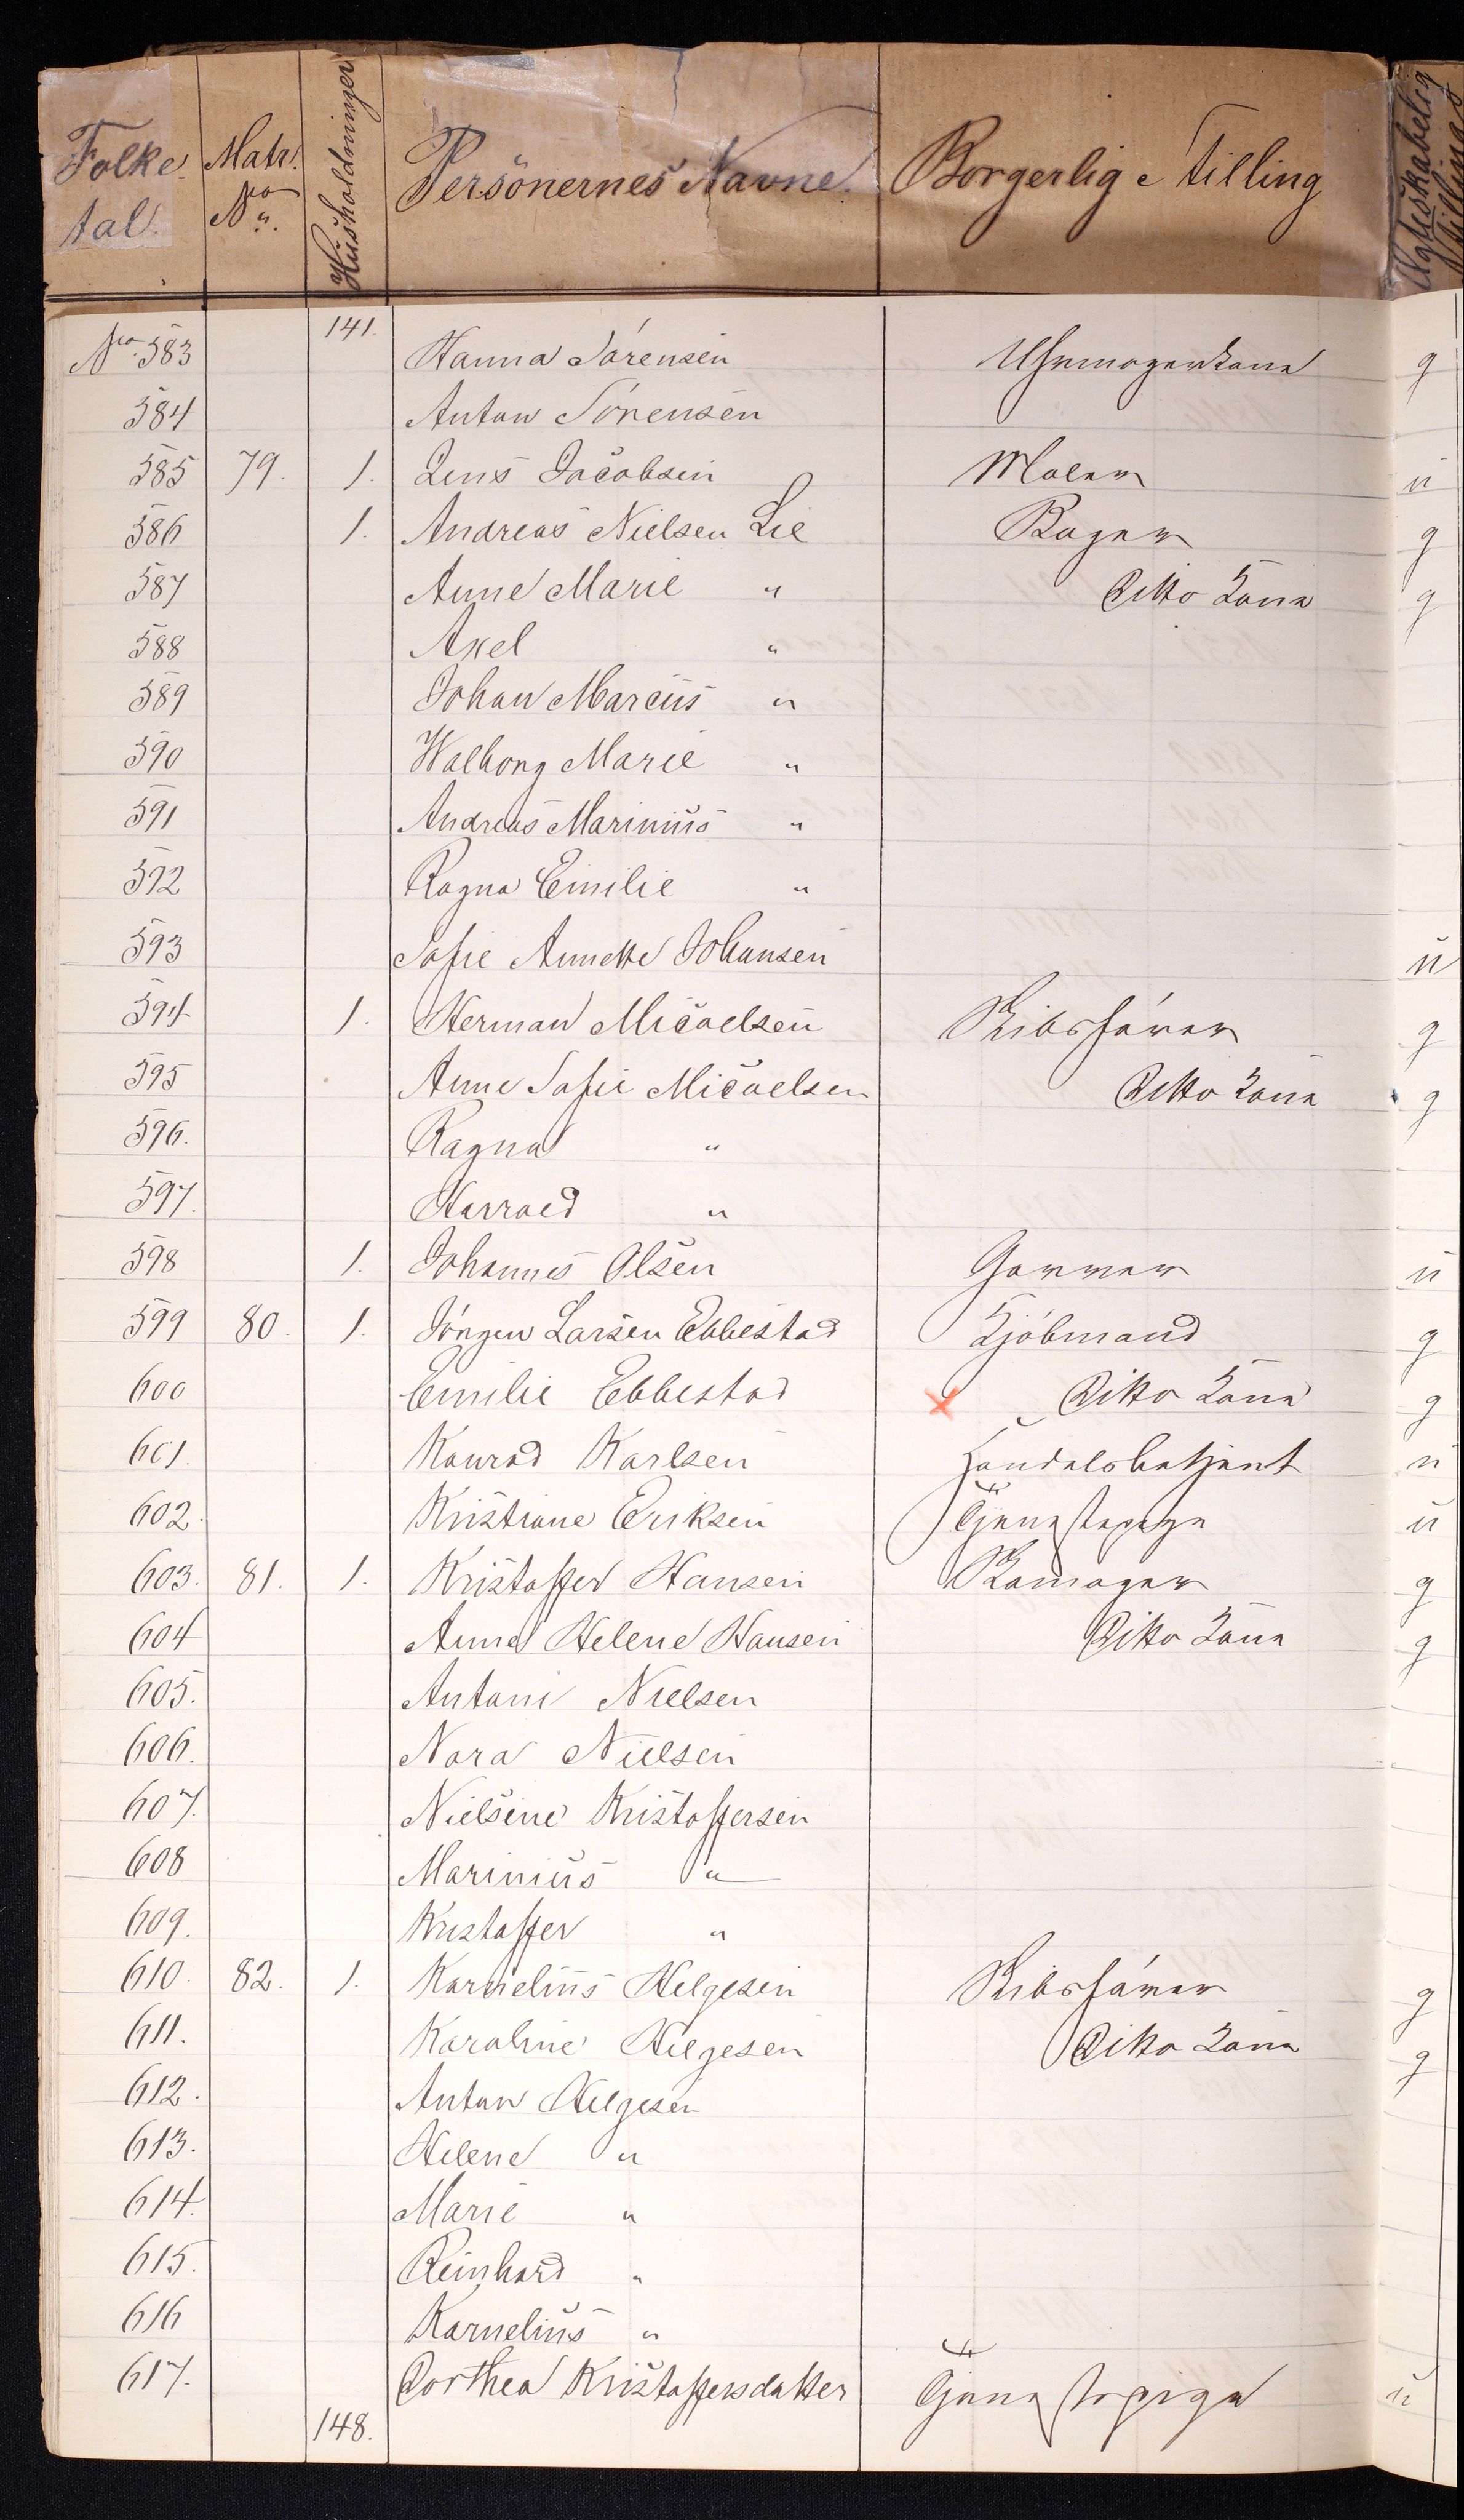 Folketal. Matr. No. Husholdninger Personernes Navne. Borgerlig Stilling Ægteskabelig Stilling
141.
No 583 Hanna Sörensen Uhrmagerkone g
584 Anton Sörensen
585 79. 1. Jens Jacobsen Maler u
586 1. Andreas Nielsen Lie Bager g
587 Anne Marie " Ditto Kone g
588 Axel "
589 Johan Marcus "
590 Walborg Marie "
591 Andreas Marinius "
592 Ragna Emilie "
593 Sofie Annette Johansen u
594 1. Herman Micaelsen Skibsförer g
595 Anne Sofie Micaelsen Ditto Kone g
596. Ragna "
597. Harrald "
598 1. Johannes Olsen Garver u
599 80. 1. Jörgen Larsen Ebbestad Kjöbmand g
600 Emilie Ebbestad x Ditto Kone g
601. Konrad Karlsen Handelsbetjent u
602. Kristiane Eriksen Tjenestepige u
603. 81. 1. Kristoffer Hansen g
604 Anne Helene Hansen Ditto Kone g
605. Antoni Nielsen
606. Nora Nielsen
607. Nielsine Kristoffersen
608 Marinius "
609. Kristoffer "
610. 82. 1. Karnelius Helgesen Skibsförer g
611. Karoline Helgesen Ditto Kone g
612. Anton Helgesen
613. Helene "
614. Marie "
615. Reinhard "
616 Karnelius "
617. Dorthea Kristoffersdatter Tjenestepige u
148.